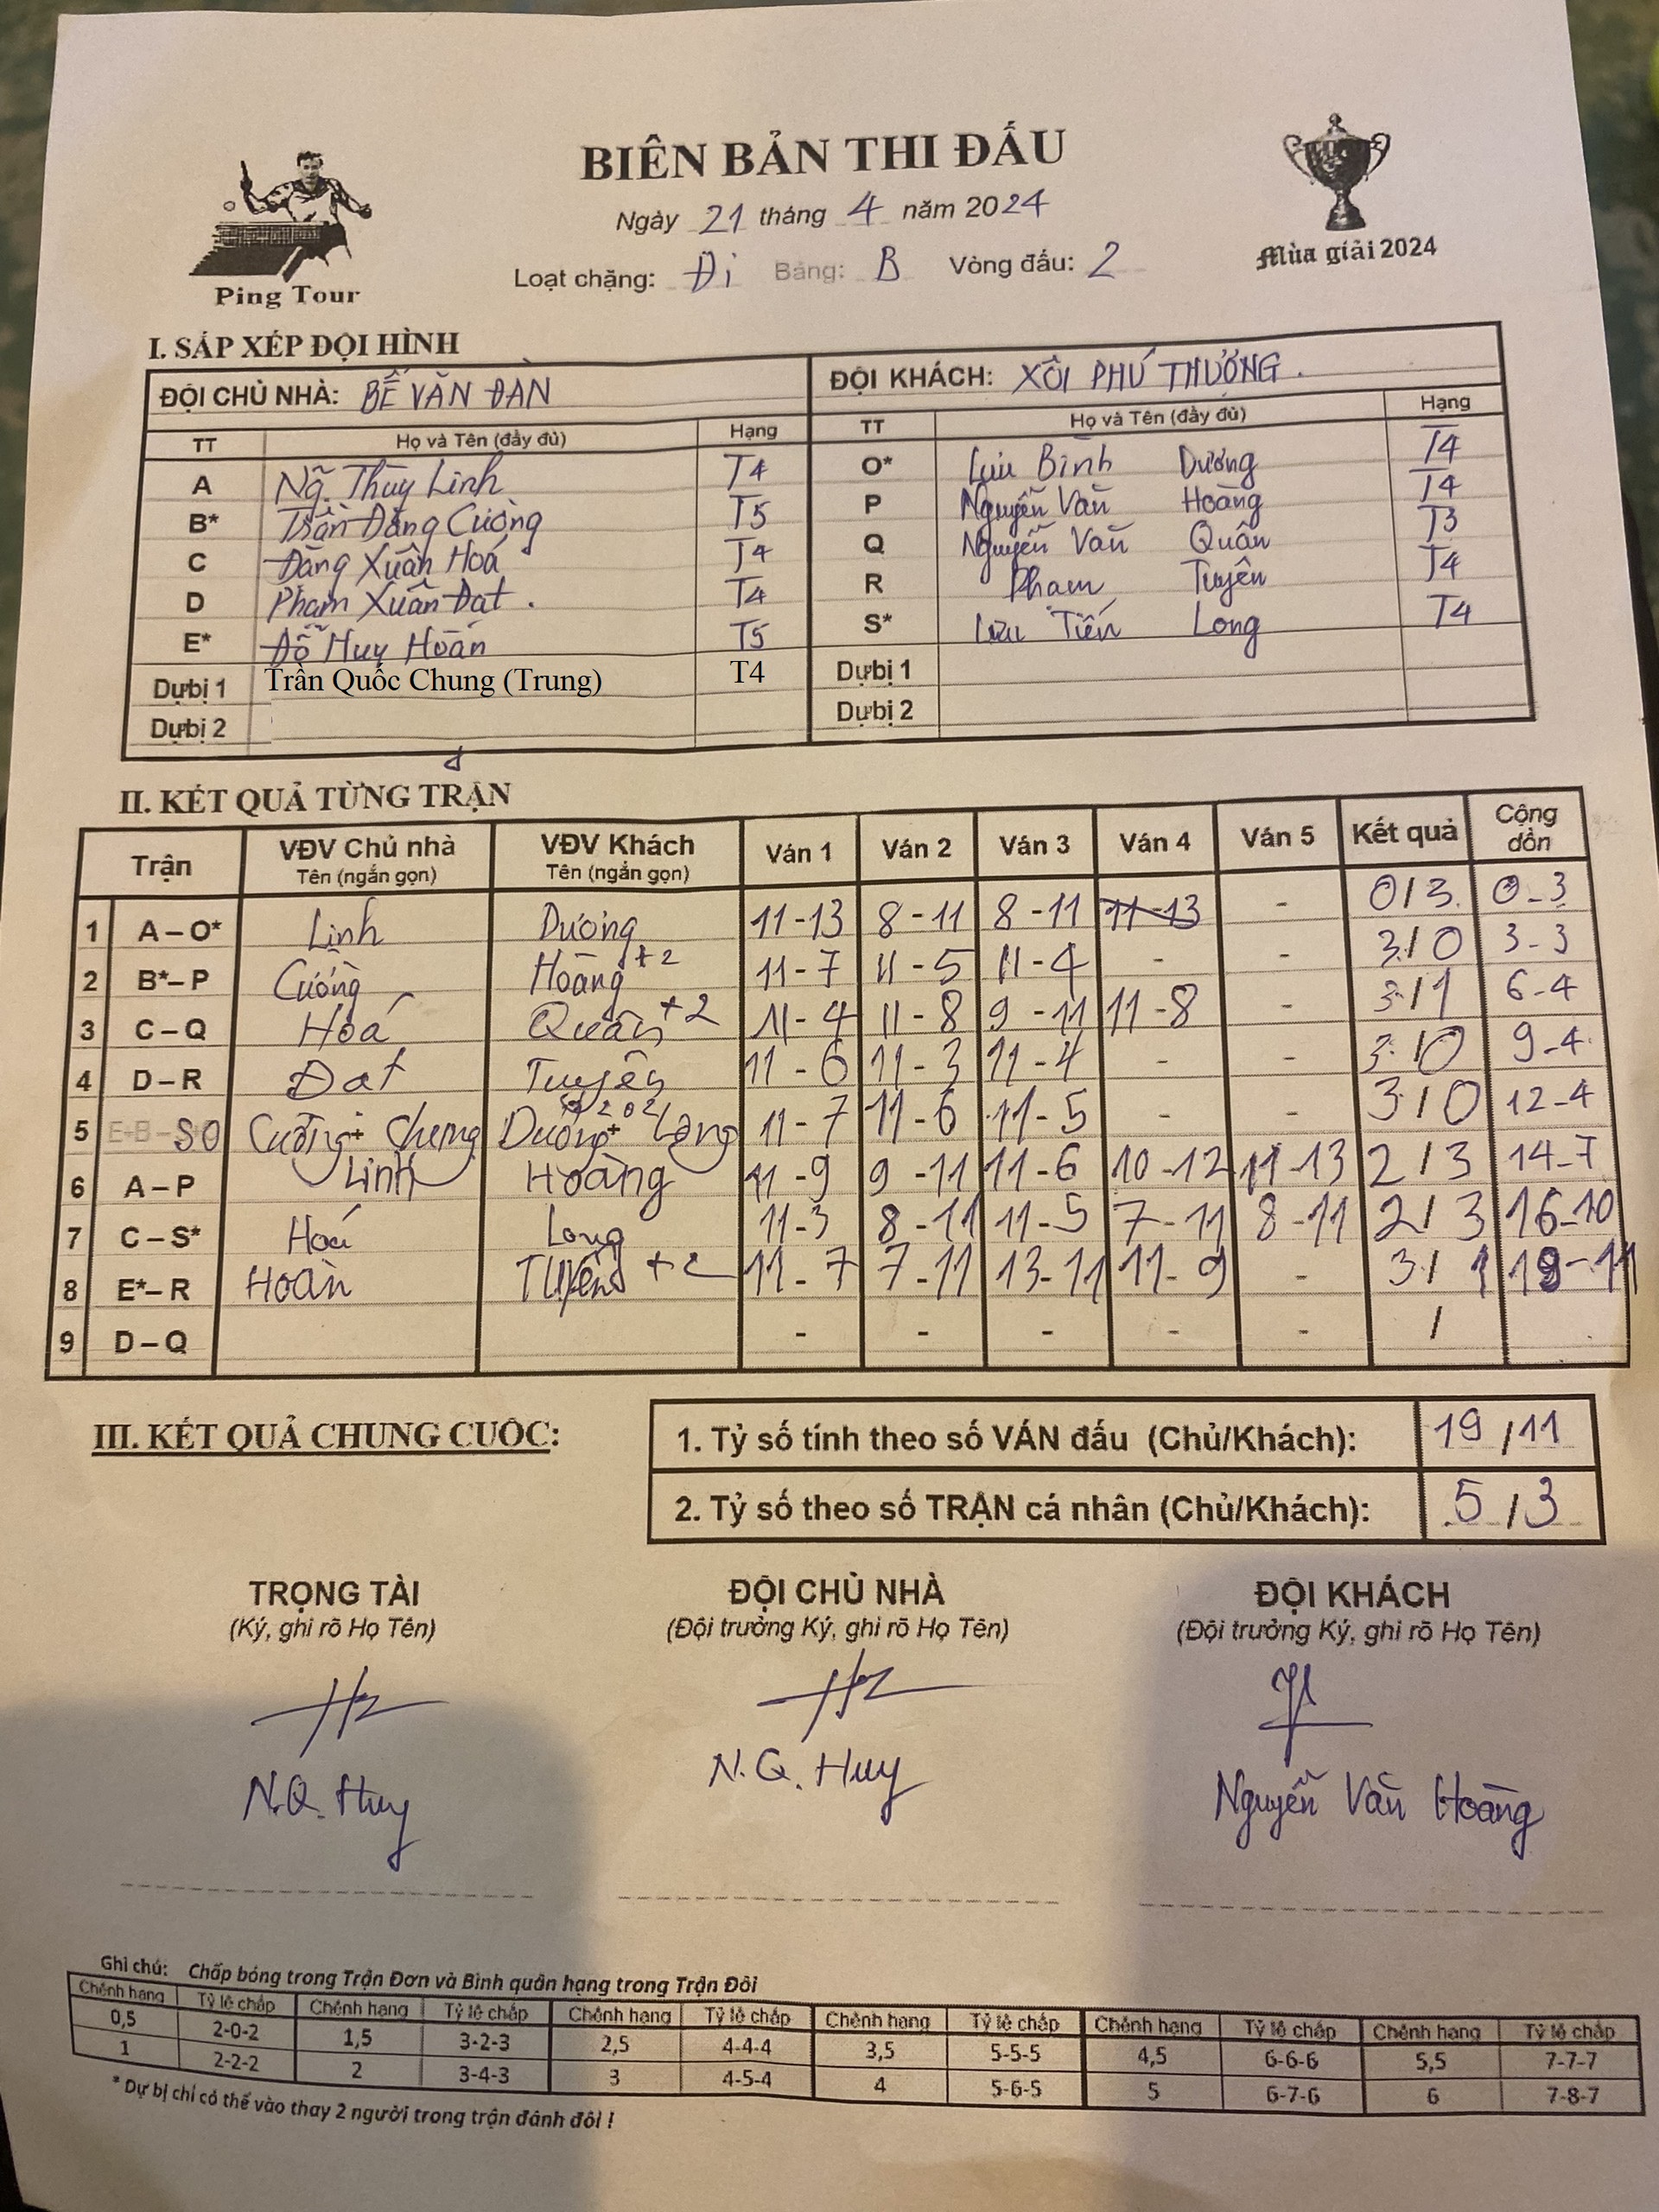 BIÊN BẢN THI ĐẤU
Ngày 21 tháng 4 năm 2024
Loạt chặng: Đi Bảng: B Vòng đấu: 2
Ping Tour
Mùa giải 2024
I. SẮP XẾP ĐỘI HÌNH
ĐỘI CHỦ NHÀ: BẾ VĂN ĐÀN ĐỘI KHÁCH: XÔI PHÚ THƯỢNG.
TT Họ và Tên (đầy đủ) Hạng TT Họ và Tên (đầy đủ) Hạng
A Ng̃. Thùy Linh T4 O* Lưu Bình Dương T4
B* Trần Đăng Cường T5 P Nguyễn Văn Hoàng T4
C Đặng Xuân Hoá T4 Q Nguyễn Văn Quân T3
D Phạm Xuân Đạt. T4 R Phạm Tuyên T4
E* Đỗ Huy Hoàn T5 S* Lưu Tiến Long T4
Dự bị 1 Trần Quốc Chung (Trung) T4 Dự bị 1
Dự bị 2 Dự bị 2
II. KẾT QUẢ TỪNG TRẬN
Trận VĐV Chủ nhà Tên (ngắn gọn) VĐV Khách Tên (ngắn gọn) Ván 1 Ván 2 Ván 3 Ván 4 Ván 5 Kết quả Cộng dồn
1 A – O* Linh Dương 11-13 8-11 8-11 11-13 - 0/3 0-3
2 B* – P Cường Hoàng +2 11-7 11-5 11-4 - - 3/0 3-3
3 C – Q Hoá Quân +2 11-4 11-8 9-11 11-8 - 3/1 6-4
4 D – R Đạt Tuyên 11-6 11-3 11-4 - - 3/0 9-4
5 E+B – SO Cường + Chung Dương + Long 202 11-7 11-6 11-5 - - 3/0 12-4
6 A – P Linh Hoàng 11-9 9-11 11-6 10-12 11-13 2/3 14-7
7 C – S* Hoá Long 11-3 8-11 11-5 7-11 8-11 2/3 16-10
8 E* – R Hoàn Tuyên +2 11-7 7-11 13-11 11-9 - 3/1 19-11
9 D – Q - - - - - /
III. KẾT QUẢ CHUNG CUỘC:
1. Tỷ số tính theo số VÁN đấu (Chủ/Khách): 19/11
2. Tỷ số theo số TRẬN cá nhân (Chủ/Khách): 5/3
TRỌNG TÀI ĐỘI CHỦ NHÀ ĐỘI KHÁCH
(Ký, ghi rõ Họ Tên) (Đội trưởng Ký, ghi rõ Họ Tên) (Đội trưởng Ký, ghi rõ Họ Tên)
N.Q. Huy N.Q. Huy Nguyễn Văn Hoàng
Ghi chú: Chấp bóng trong Trận Đơn và Bình quân hạng trong Trận Đôi
Chênh hạng Tỷ lệ chấp Chênh hạng Tỷ lệ chấp Chênh hạng Tỷ lệ chấp Chênh hạng Tỷ lệ chấp Chênh hạng Tỷ lệ chấp Chênh hạng Tỷ lệ chấp
0,5 2-0-2 1,5 3-2-3 2,5 4-4-4 3,5 5-5-5 4,5 6-6-6 5,5 7-7-7
1 2-2-2 2 3-4-3 3 4-5-4 4 5-6-5 5 6-7-6 6 7-8-7
* Dự bị chỉ có thể vào thay 2 người trong trận đánh đôi !